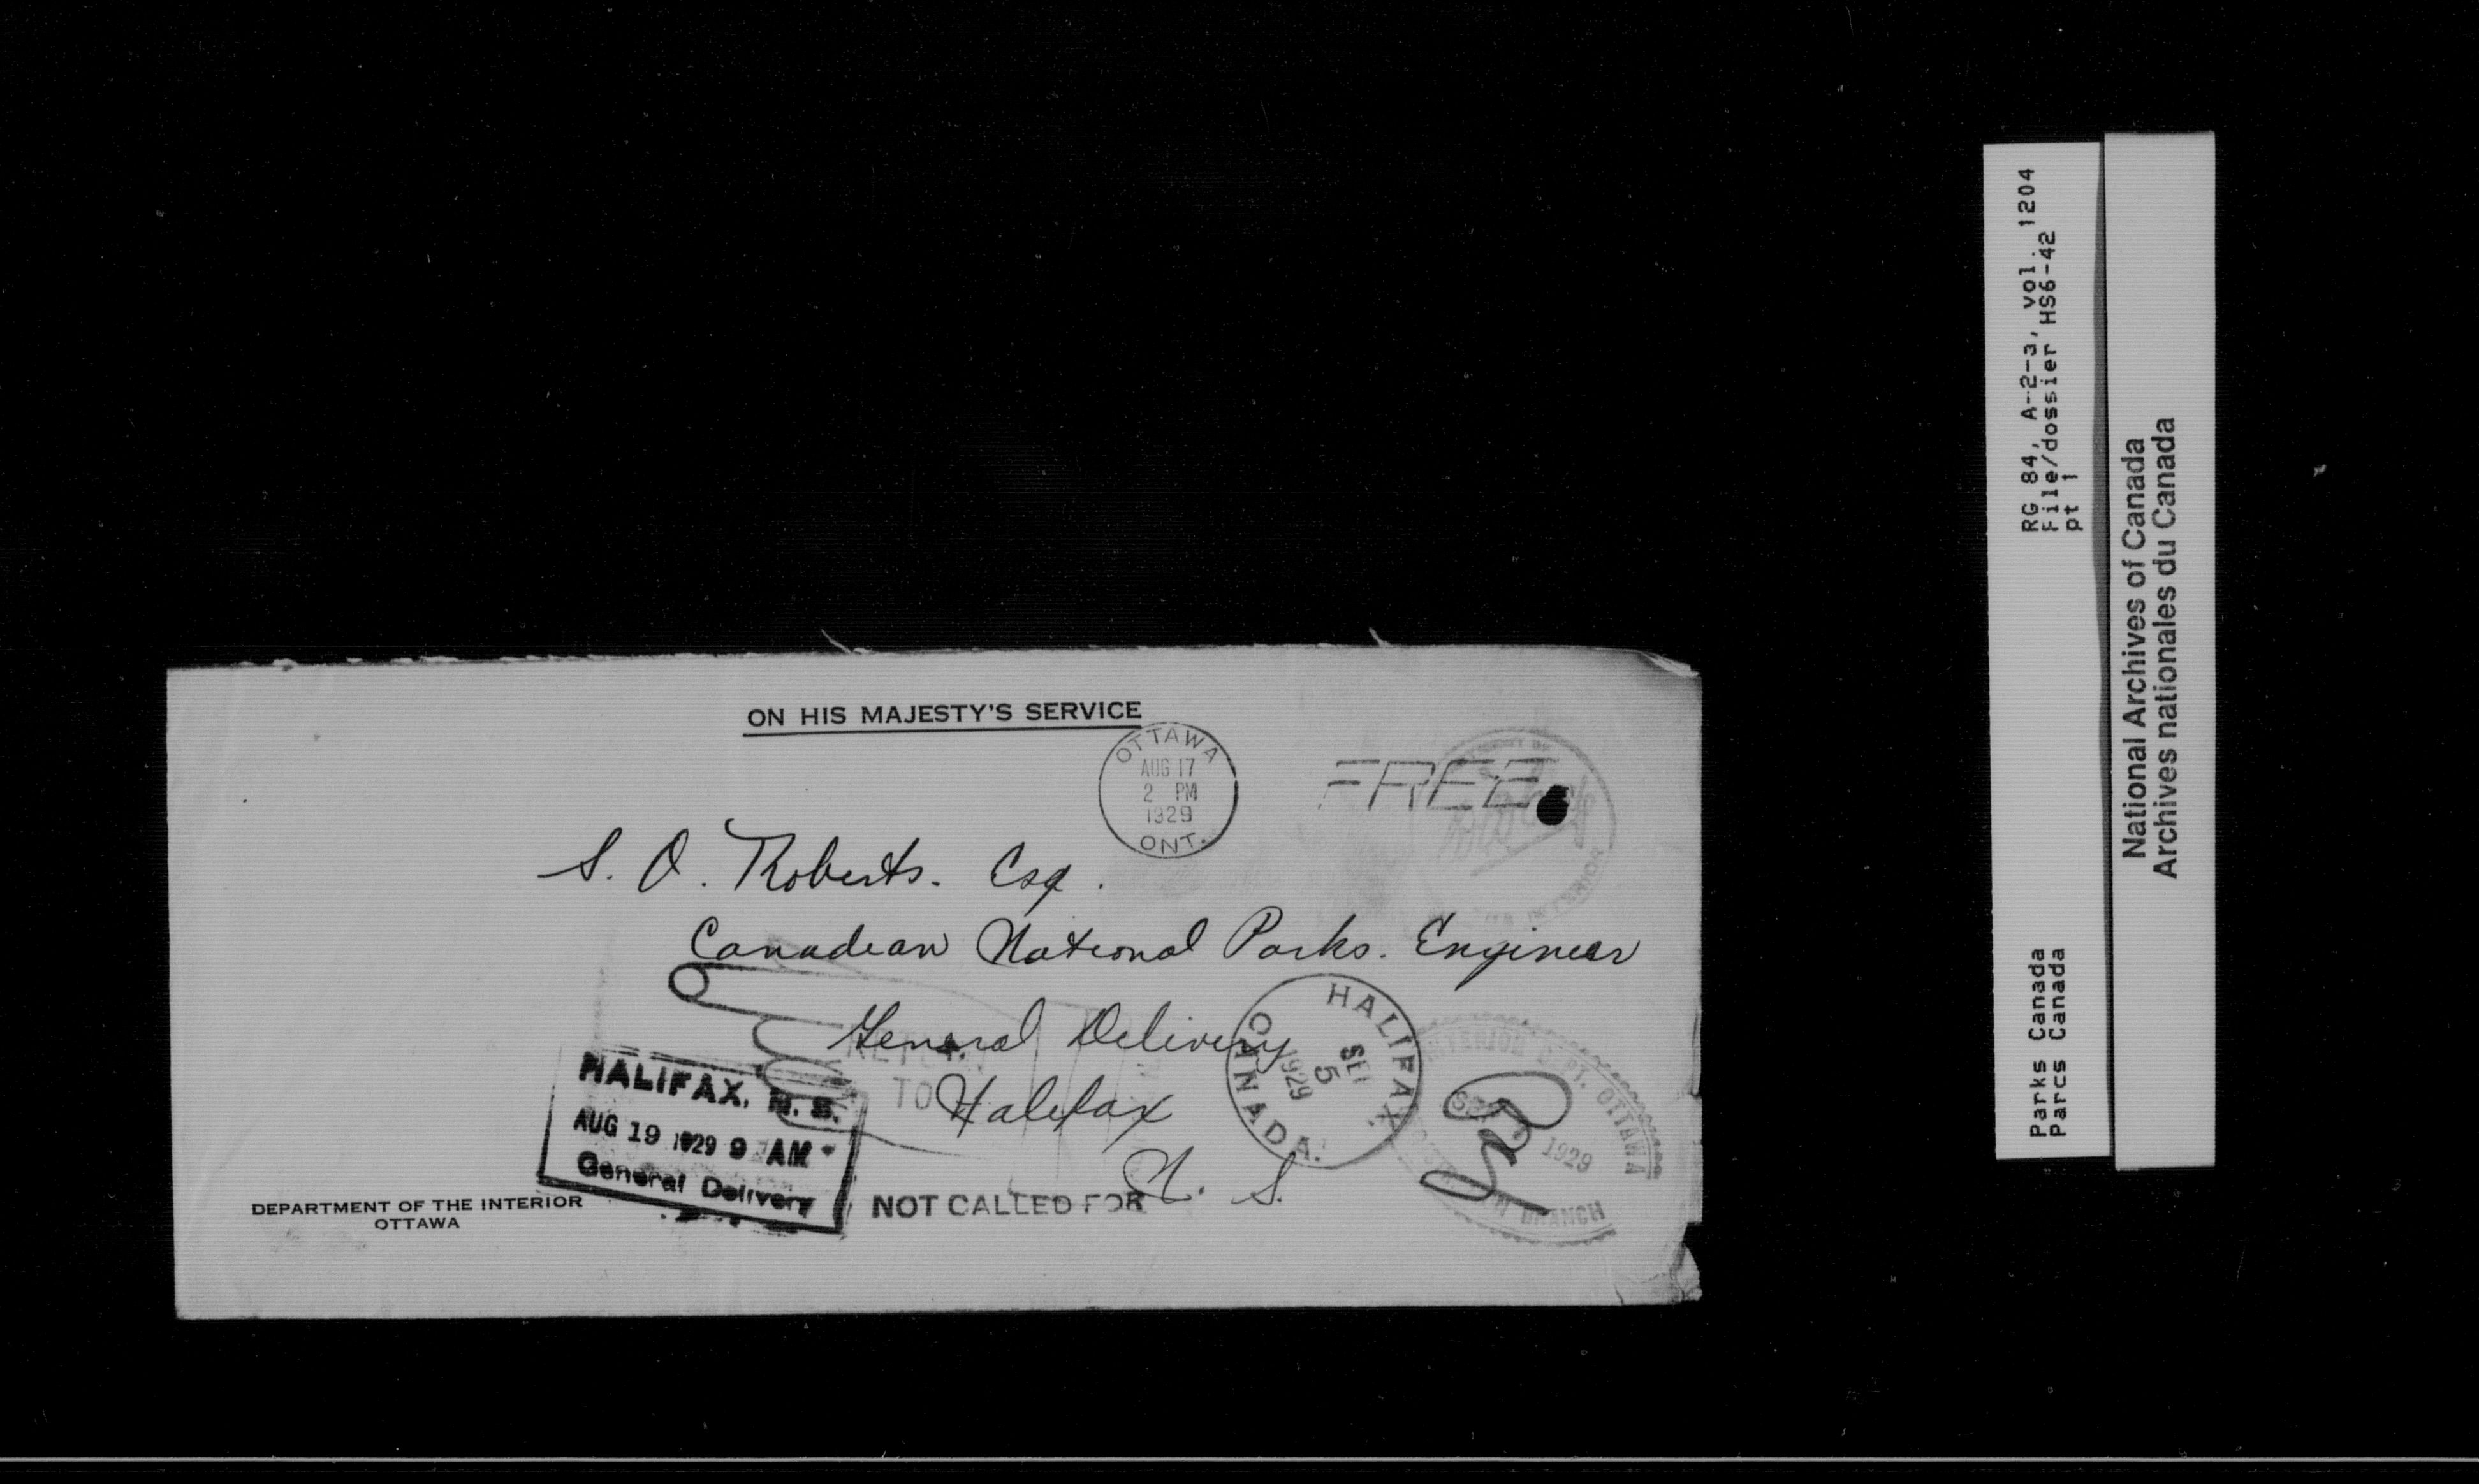 ON HIS MAJESTY'S SERVICE
OTTAWA
AUG 17
2 PM
1929
ONT.
FREE
S. O. Roberts. Esq.
Canadian National Parks. Engineer
General Delivery
Halifax
N. S.
RETURN
TO
HALIFAX, N. S.
AUG 19 1929 9 AM
General Delivery
NOT CALLED FOR
HALIFAX.
CANADA.
SEP
5
1929
INTERIOR DEPT. OTTAWA
1929
BRANCH
DEPARTMENT OF THE INTERIOR
OTTAWA
RG 84, A-2-a, vol. 1204
File/dossier HS6-42
pt 1
Parks Canada
Parcs Canada
National Archives of Canada
Archives nationales du Canada